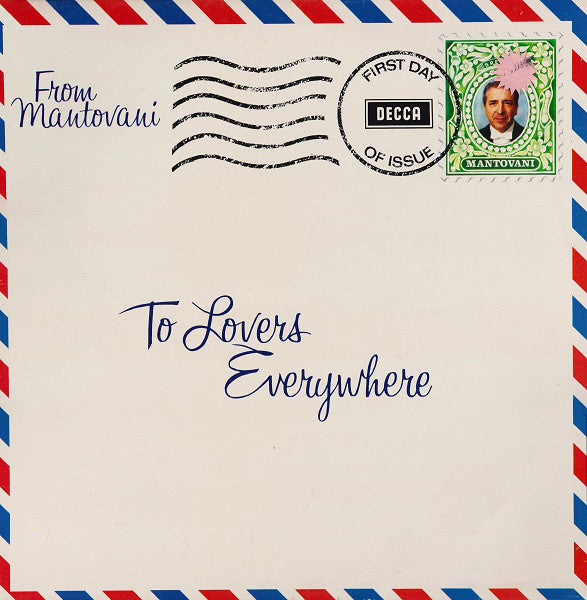 From
Mantovani
FIRST DAY
DECCA
OF ISSUE
MANTOVANI
To Lovers
Everywhere